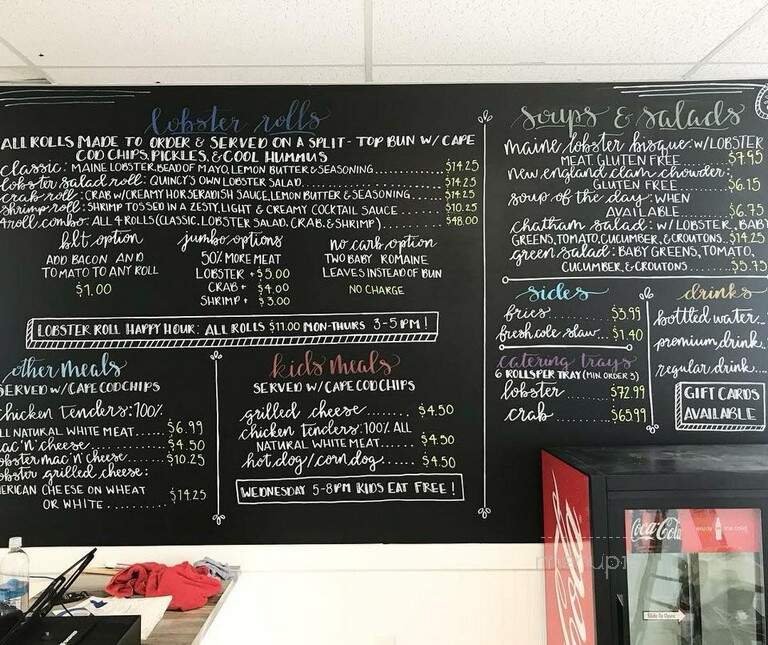 lobster rolls
ALL ROLLS MADE TO ORDER & SERVED ON A SPLIT-TOP BUN W/ CAPE
COD CHIPS, PICKLES, & COOL HUMMUS
classic: MAINE LOBSTER, BEAD OF MAYO, LEMON BUTTER & SEASONING $14.25
lobster salad roll: QUINCY'S OWN LOBSTER SALAD $14.25
crab roll: CRAB W/CREAMY HORSERADISH SAUCE, LEMON BUTTER & SEASONING $14.25
shrimp roll: SHRIMP TOSSED IN A ZESTY, LIGHT & CREAMY COCKTAIL SAUCE $10.25
4 roll combo: ALL 4 ROLLS (CLASSIC, LOBSTER SALAD, CRAB, & SHRIMP) $48.00
blt option
ADD BACON AND
TOMATO TO ANY ROLL
$1.00
jumbo options
50% MORE MEAT
LOBSTER + $5.00
CRAB + $4.00
SHRIMP + $3.00
no carb option
TWO BABY ROMAINE
LEAVES INSTEAD OF BUN
NO CHARGE
LOBSTER ROLL HAPPY HOUR: ALL ROLLS $11.00 MON-THURS 3-5 PM!
other meals
SERVED W/ CAPE COD CHIPS
chicken tenders: 100%
ALL NATURAL WHITE MEAT...... $6.99
mac 'n' cheese $4.50
lobster mac 'n' cheese $10.25
lobster grilled cheese:
AMERICAN CHEESE ON WHEAT
OR WHITE $14.25
kids meals
SERVED W/ CAPE COD CHIPS
grilled cheese $4.50
chicken tenders: 100% ALL
NATURAL WHITE MEAT $4.50
hot dog/corn dog $4.50
WEDNESDAY 5-8PM KIDS EAT FREE!
soups & salads
maine lobster bisque: W/ LOBSTER
MEAT. GLUTEN FREE $7.95
new england clam chowder:
GLUTEN FREE $6.15
soup of the day: WHEN
AVAILABLE $6.75
chatham salad: W/ LOBSTER, BABY
GREENS, TOMATO, CUCUMBER, & CROUTONS $14.25
green salad: BABY GREENS, TOMATO,
CUCUMBER, & CROUTONS $5.75
sides
fries $3.99
fresh cole slaw $1.40
catering trays
6 ROLLS PER TRAY (MIN. ORDER 3)
lobster $72.99
crab $65.99
drinks
bottled water
premium drink
regular drink
GIFT CARDS
AVAILABLE
Coca-Cola
enjoy
Slide to Open
Coca-Cola